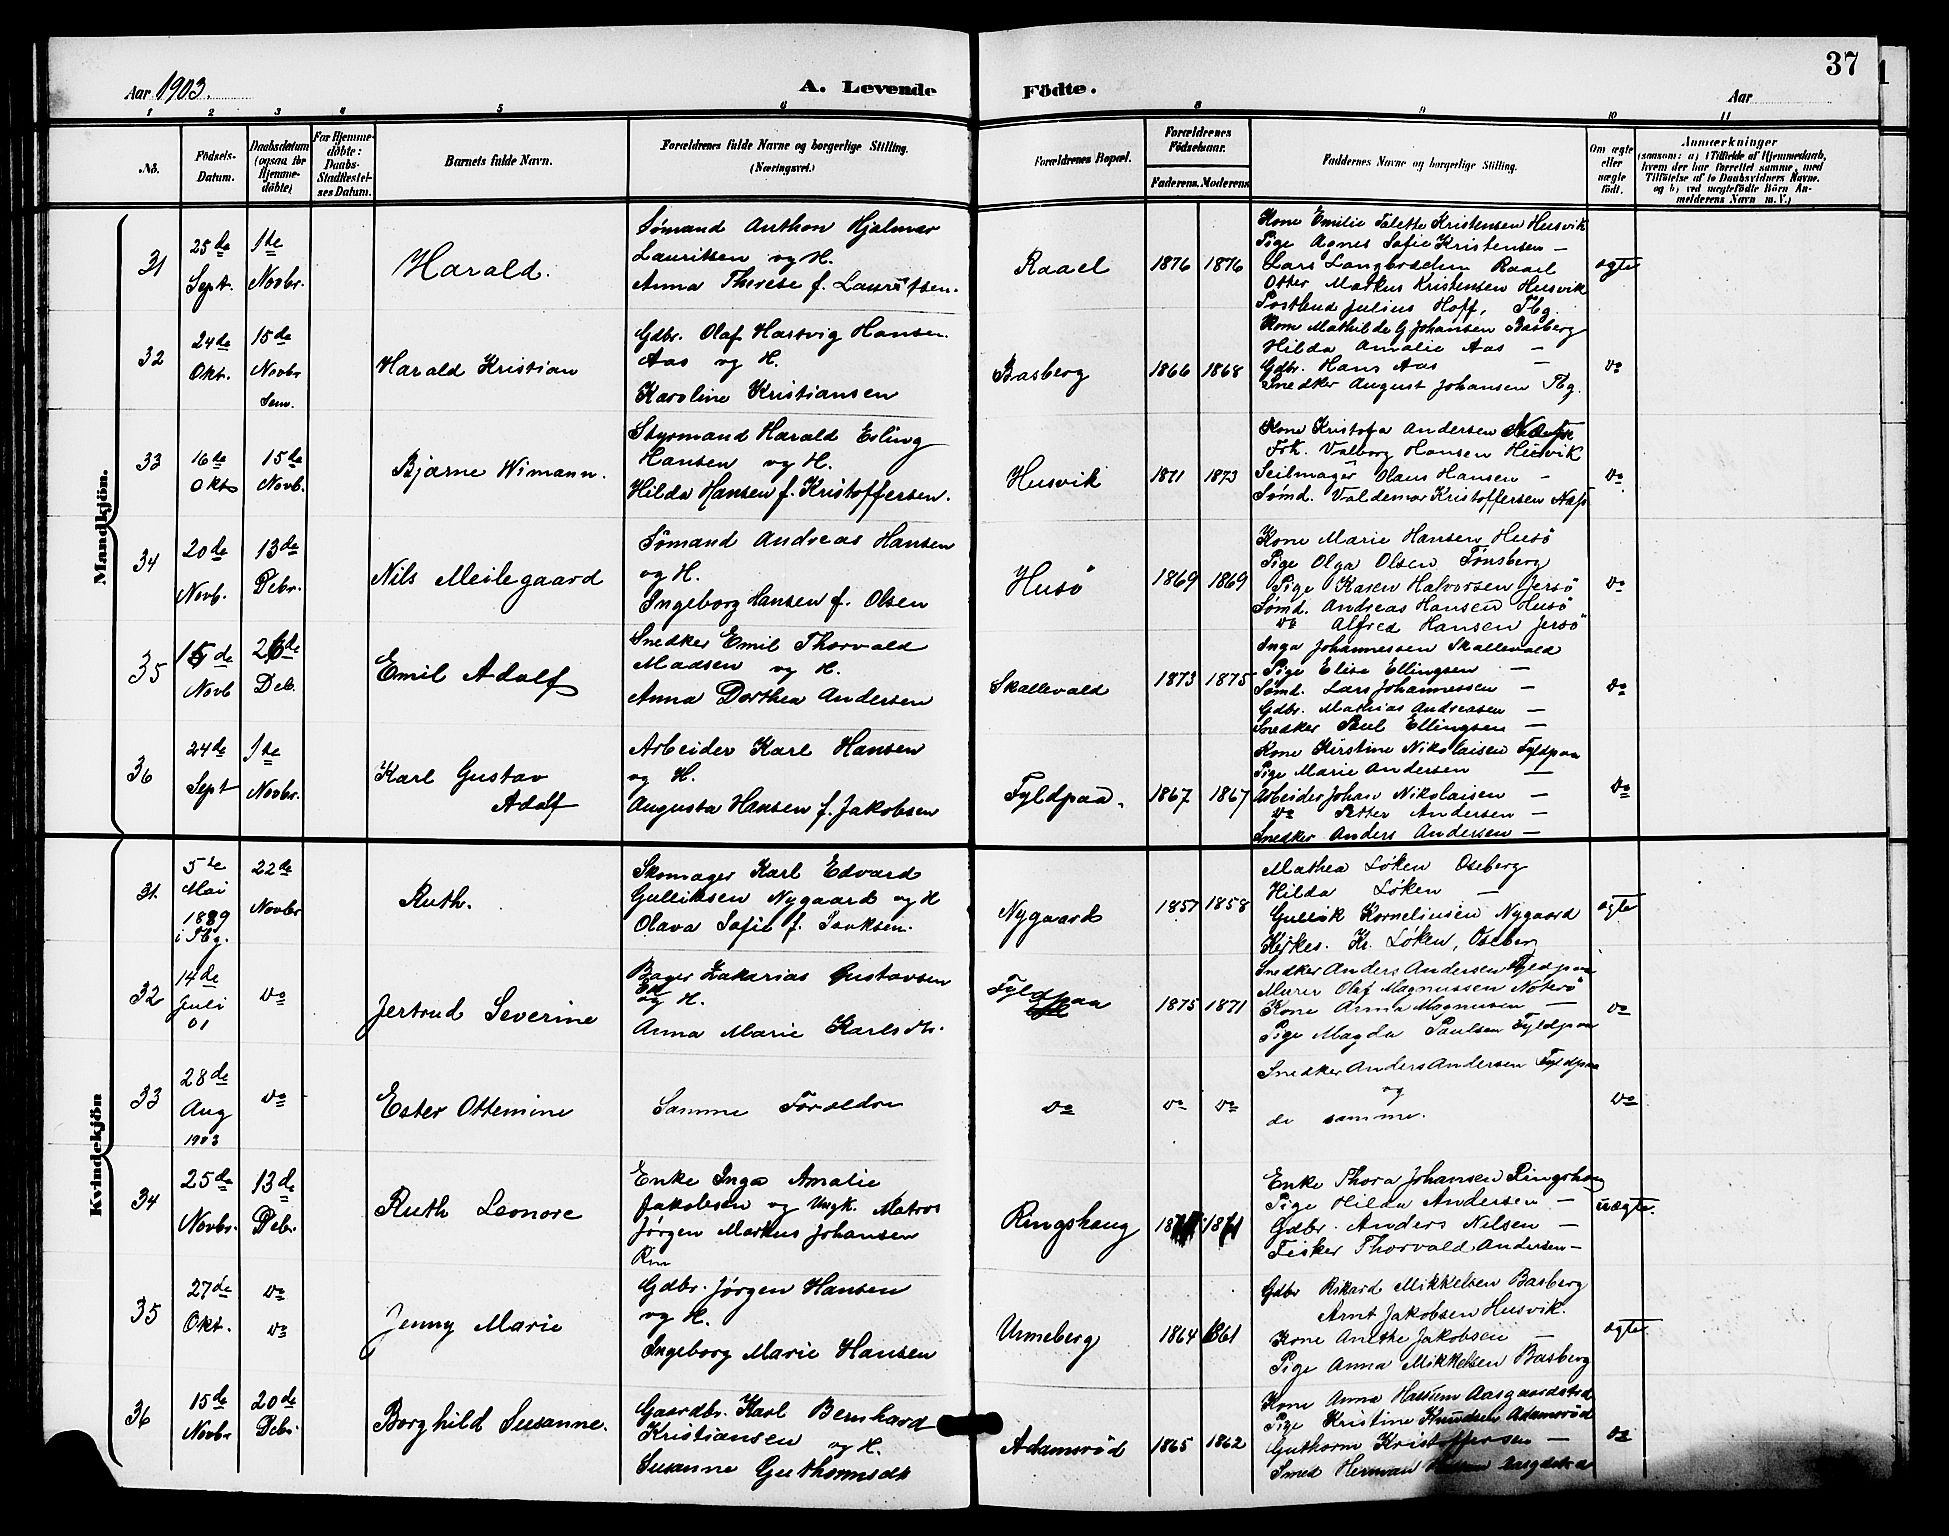 37
Aar 1903.
A. Levende
Födte.
Aar
1 2 3 4 5 6 8 9 10 11
No.
Födsels-Datum.
Daabsdatum (ogsaa for Hjemme-döbte)
For Hjemme-döbte: Daabs-Stadfæstel-ses Datum.
Barnets fulde Navn.
Forældrenes fulde Navne og borgerlige Stilling.
(Næringsvei.)
Forældrenes Bopæl.
Forældrenes Födselsaar.
Faderens. Moderens.
Faddernes Navne og borgerlige Stilling.
Om ægte eller uægte födt.
Anmærkninger
(saasom: a) i Tilfælde af Hjemmedaab,
hvem der har forrettet samme, med
Tilföielse af to Daabsvidners Navne.
og b) ved uægtefödte Börn An-
melderens Navn m. V.)
Mandkjön.
31
25de Sept.
1ste Novbr.
Harald.
Sømand Anthon Hjalmar
Lauritsen og H.
Anna Therese f. Lauritsen.
Raael
1876 1876
Kone Emilie Talette Kristensen Husvik
Pige Agnes Sofie Kristensen —
Lars Langbrachen Raael
Otter Markus Kristensen Husvik
Postbud Julius Hoff, Tbg.
ægte
32
24de Okt.
15de Novbr Sem.
Harald Kristian
Gdbr. Olaf Hartvig Hansen
Aas og H.
Karoline Kristiansen
Basberg
1866 1868
Kone Mathilde G Johansen Basberg
Hilda Amalie Aas —
Gdbr. Hans Aas —
Snedker August Johansen Tbg.
do
33
16de Okt
15de Novb.
Bjarne Wimann.
Styrmand Harald Esling
Hansen og H.
Hilda Hansen f. Kristoffersen.
Husvik
1871 1873
Kone Kristofa Andersen
Frk. Valborg Hansen Husvik
Seilmager Olaus Hansen —
Sømd. Valdemar Kristoffersen Næs
do
34
20de Novb.
13de Debr.
Nils Meilegaard
Sömand Andreas Hansen
og H.
Ingeborg Hansen f. Olsen
Husö
1869 1869
Kone Marie Hansen Husö
Pige Olga Olsen Tønsberg
Pige Karen Halvorsen Jersö
Sømd. Andreas Hansen Husö
do Alfred Hansen Jersö
do
35
15de Novb
26de Deb.
Emil Adolf
Snedker Emil Thorvald
Madsen og H.
Anna Dorthea Andersen
Skallevald
1873 1875
Inga Johannessen Skallevald
Pige Elise Ellingsen —
Sømd. Lars Johannessen —
Gdbr. Mathias Andreasen —
Snedker Paul Ellingsen —
do
36
24de Sept
1ste Novbr.
Karl Gustav
Adolf
Arbeider Karl Hansen
og H.
Augusta Hansen f. Jakobsen
Fyldpaa.
1867 1867
Kone Kirstine Nikolaisen Fyldpaa
Pige Marie Andersen —
Arbeider Johan Nikolaisen —
do Petter Andersen —
Snedker Anders Andersen —
do
Kvindekjön
31.
5te Mai 1889 i Tbg.
22de Novbr
Ruth.
Skomager Karl Edvard
Gulliksen Nygaard og H
Olava Sofie f. Isaksen.
Nygaard
1857 1858
Mathea Løken Oseberg
Hilda Løken —
Gullik Korneliusen Nygaard
Kirkes. Kr. Løken, Oseberg
ægte
32
14de Juli 01
do
Jertrud Severine
Bager Zakarias Gustavsen
og H.
Anna Marie Karlsdtr.
Fyldpaa
1875 1871
Snedker Anders Andersen Fyldpaa
Murer Olaf Magnussen Nøterö
Kone Anna Magnusen —
Pige Magda Paulsen Fyldpaa
do
33
28de Aug 1903
do
Ester Ottemine
Samme Forældre
do
do do
Snedker Anders Andersen Fyldpaa
og
de samme.
do
34
25de Novbr.
13de Deb.
Ruth Leonore
Enke Inga Amalie
Jakobsen og Ungk. Matros
Jørgen Markus Johansen
Rin
Ringshaug
1871
Enke Thora Johansen Ringshaug
Pige Hilda Andersen —
Gdbr. Anders Nilsen —
Fisker Thorvald Andersen —
uægte.
35
27de Okt.
do do
Jenny Marie
Gdbr. Jørgen Hansen
og H.
Ingeborg Marie Hansen
Unneberg
1864 1861
Gdbr Rikard Mikkelsen Basberg
Arnt Jakobsen Husvik.
Kone Anethe Jakobsen —
Pige Anna Mikkelsen Basberg
ægte
36
15de Novbr
20de Debr
Borghild Susanne.
Gaardbr. Karl Bernhard
Kristiansen og H.
Susanne Guthormsdtr
Adamsrød
1865 1862
Kone Anna Hassum Aasgaardstrd
Pige Kristine Knudsen Adamsrød
Guthorm Kristoffersen —
Smed Herman
do